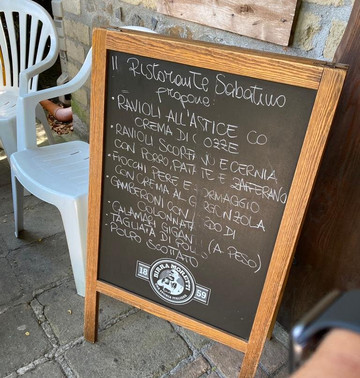 Il Ristorante Sabatino
propone:
• RAVIOLI ALL'ASTICE CO
CREMA DI COZZE
• RAVIOLI SCORF NU E CERNIA
CON PORRO, PATATE E ZAFFERANO
• FIOCCHI PERE E ORMAGGIO
CON CREMA AL G R GONZOLA
• GAMBERONI CON L RDO DI
COLONNAT
• CALAMARI GIGAN
• TAGLIATA DI POL (A PESO)
• POLPO SCOTTATO
BIRRA MORETTI
18 59